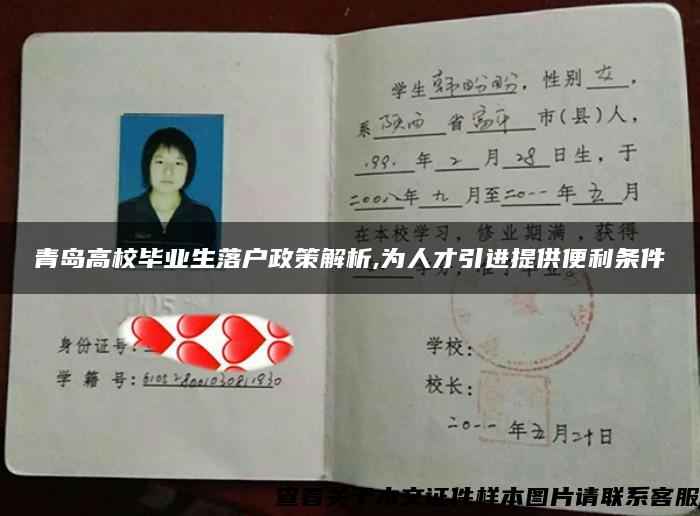 学生韩盼盼，性别女，
系陕西省富平市(县)人，
199.年2月28日生，于
二00八年九月至二0一一年五月
在本校学习，修业期满，获得
青岛高校毕业生落户政策解析,为人才引进提供便利条件
身份证号:
学籍号:
学校:
校长:
二0一一年五月二十日
查看关于本文证件样本图片请联系客服